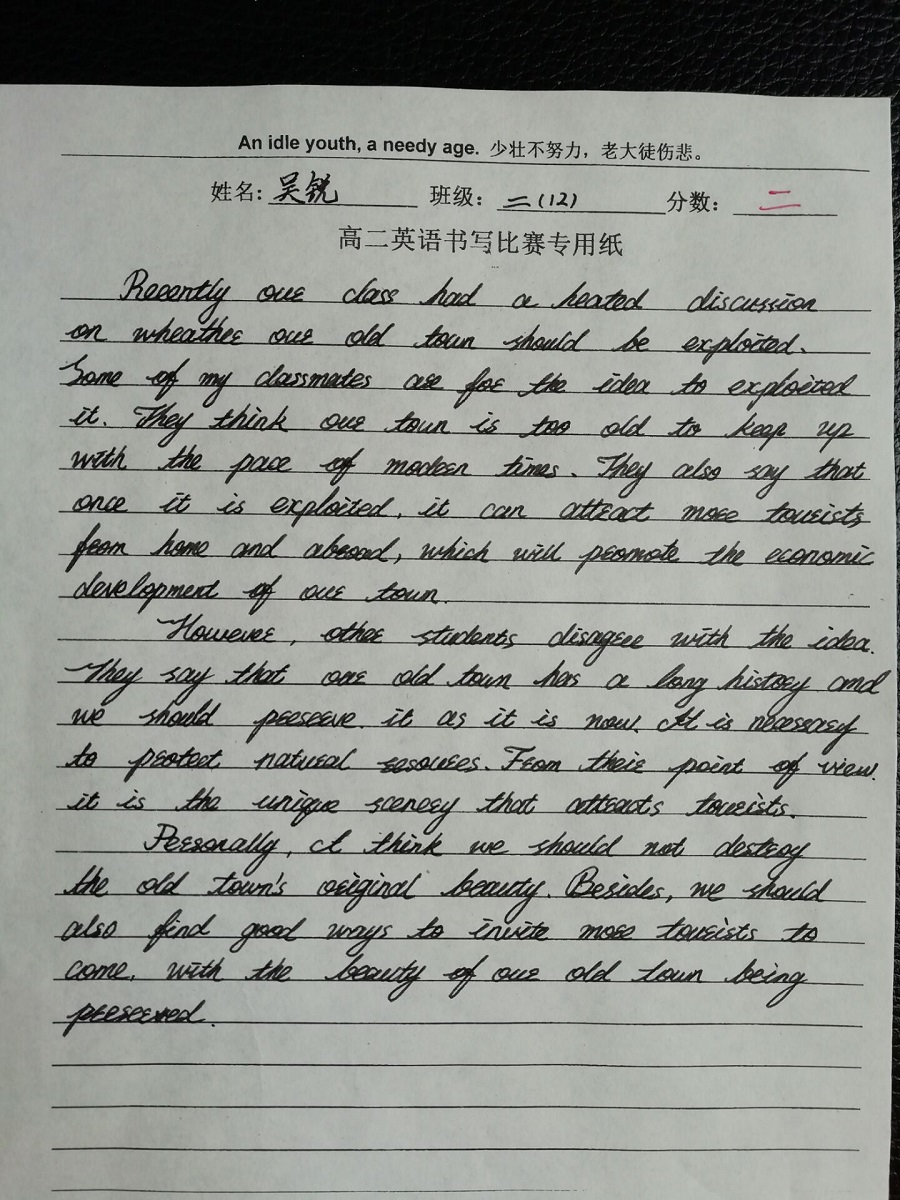 An idle youth, a needy age. 少壮不努力，老大徒伤悲。
姓名：吴锐 班级：二(12) 分数：二
高二英语书写比赛专用纸
Recently our class had a heated discussion
on wheather our old town should be exploited.
Some of my classmates are for the idea to exploited
it. They think our town is too old to keep up
with the pace of modern times. They also say that
once it is exploited, it can attract more tourists
from home and abroad, which will promote the economic
development of our town.
However, other students disagree with the idea.
They say that our old town has a long history and
we should preserve it as it is now. It is necessary
to protect natural resources. From their point of view.
it is the unique scenery that attracts tourists.
Personally, I think we should not destroy
the old town's original beauty. Besides, we should
also find good ways to invite more tourists to
come, with the beauty of our old town being
preserved.